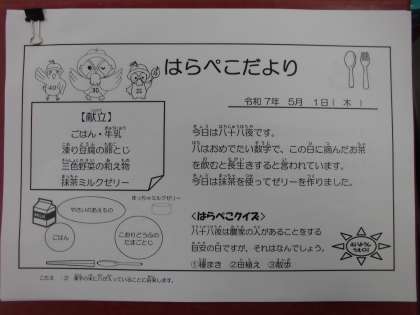 はらぺこだより
令和 7年 5月 1日( 木 )
【献立】
ごはん・牛乳
凍り豆腐の卵とじ
三色野菜の和え物
抹茶ミルクゼリー
今日は八十八夜です。
八はおめでたい数字で、この日に摘んだお茶
を飲むと長生きすると言われています。
今日は抹茶を使ってゼリーを作りました。
まっちゃミルクゼリー
やさいのあえもの
ごはん
こおりどうふの
たまごとじ
<はらぺこクイズ>
八十八夜は農家の人があることをする
目安の日ですが、それはなんでしょう。
①種まき ②田植え ③散歩